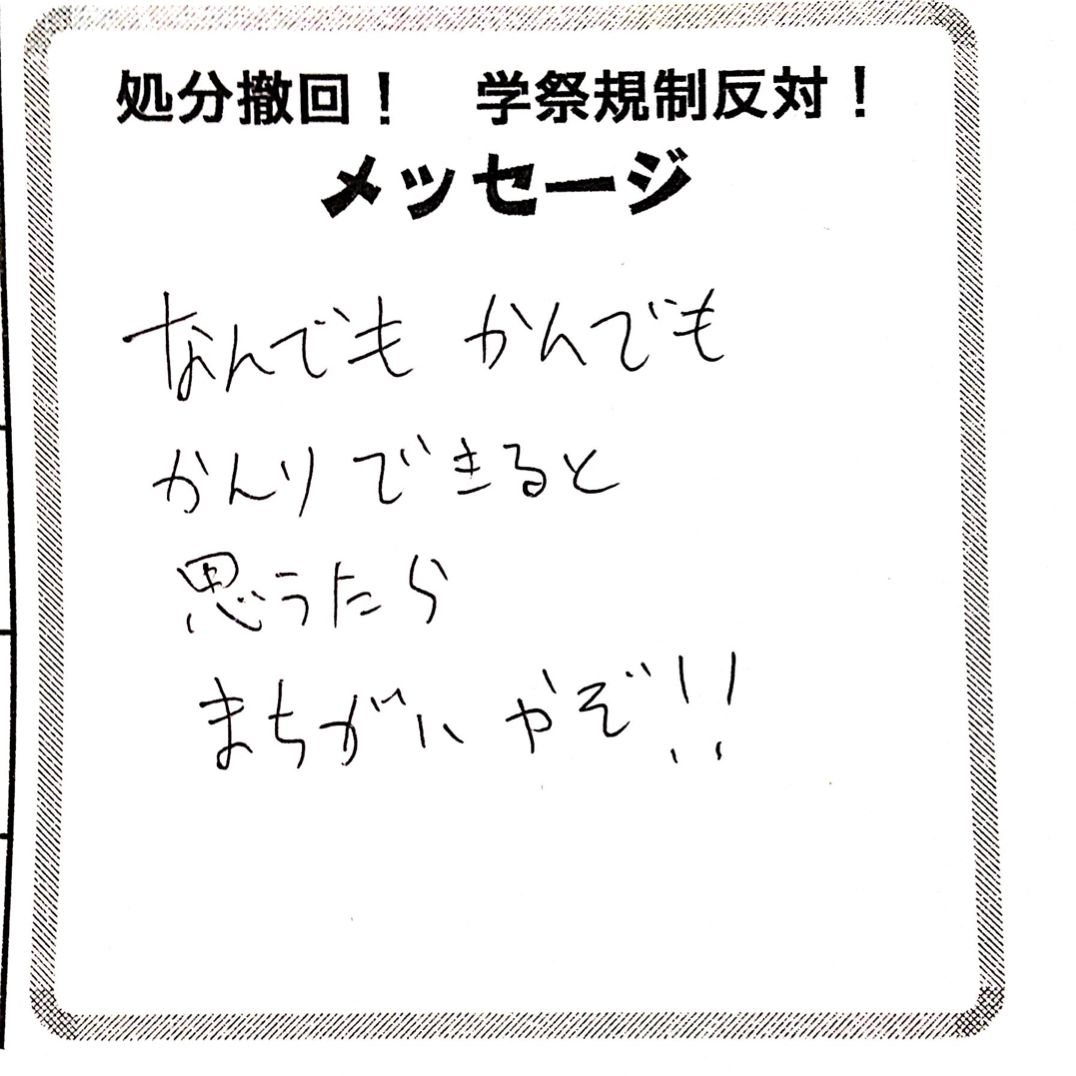 処分撤回！　学祭規制反対！
メッセージ
なんでも かんでも
かんりできると
思うたら
まちがいやぞ！！